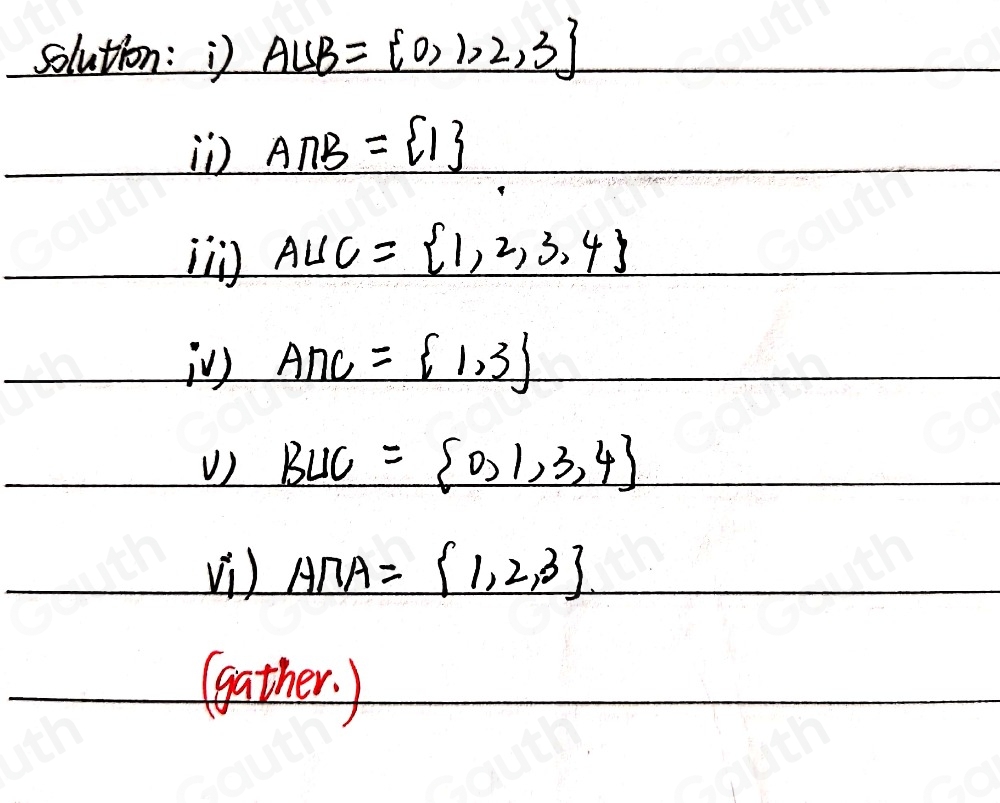 solution: i) A∪B = {0, 1, 2, 3}
ii) A∩B = {1}
iii) A∪C = {1, 2, 3, 4}
iv) A∩C = {1, 3}
v) B∪C = {0, 1, 3, 4}
vi) A∩A = {1, 2, 3}.
(gather.)
Gauth